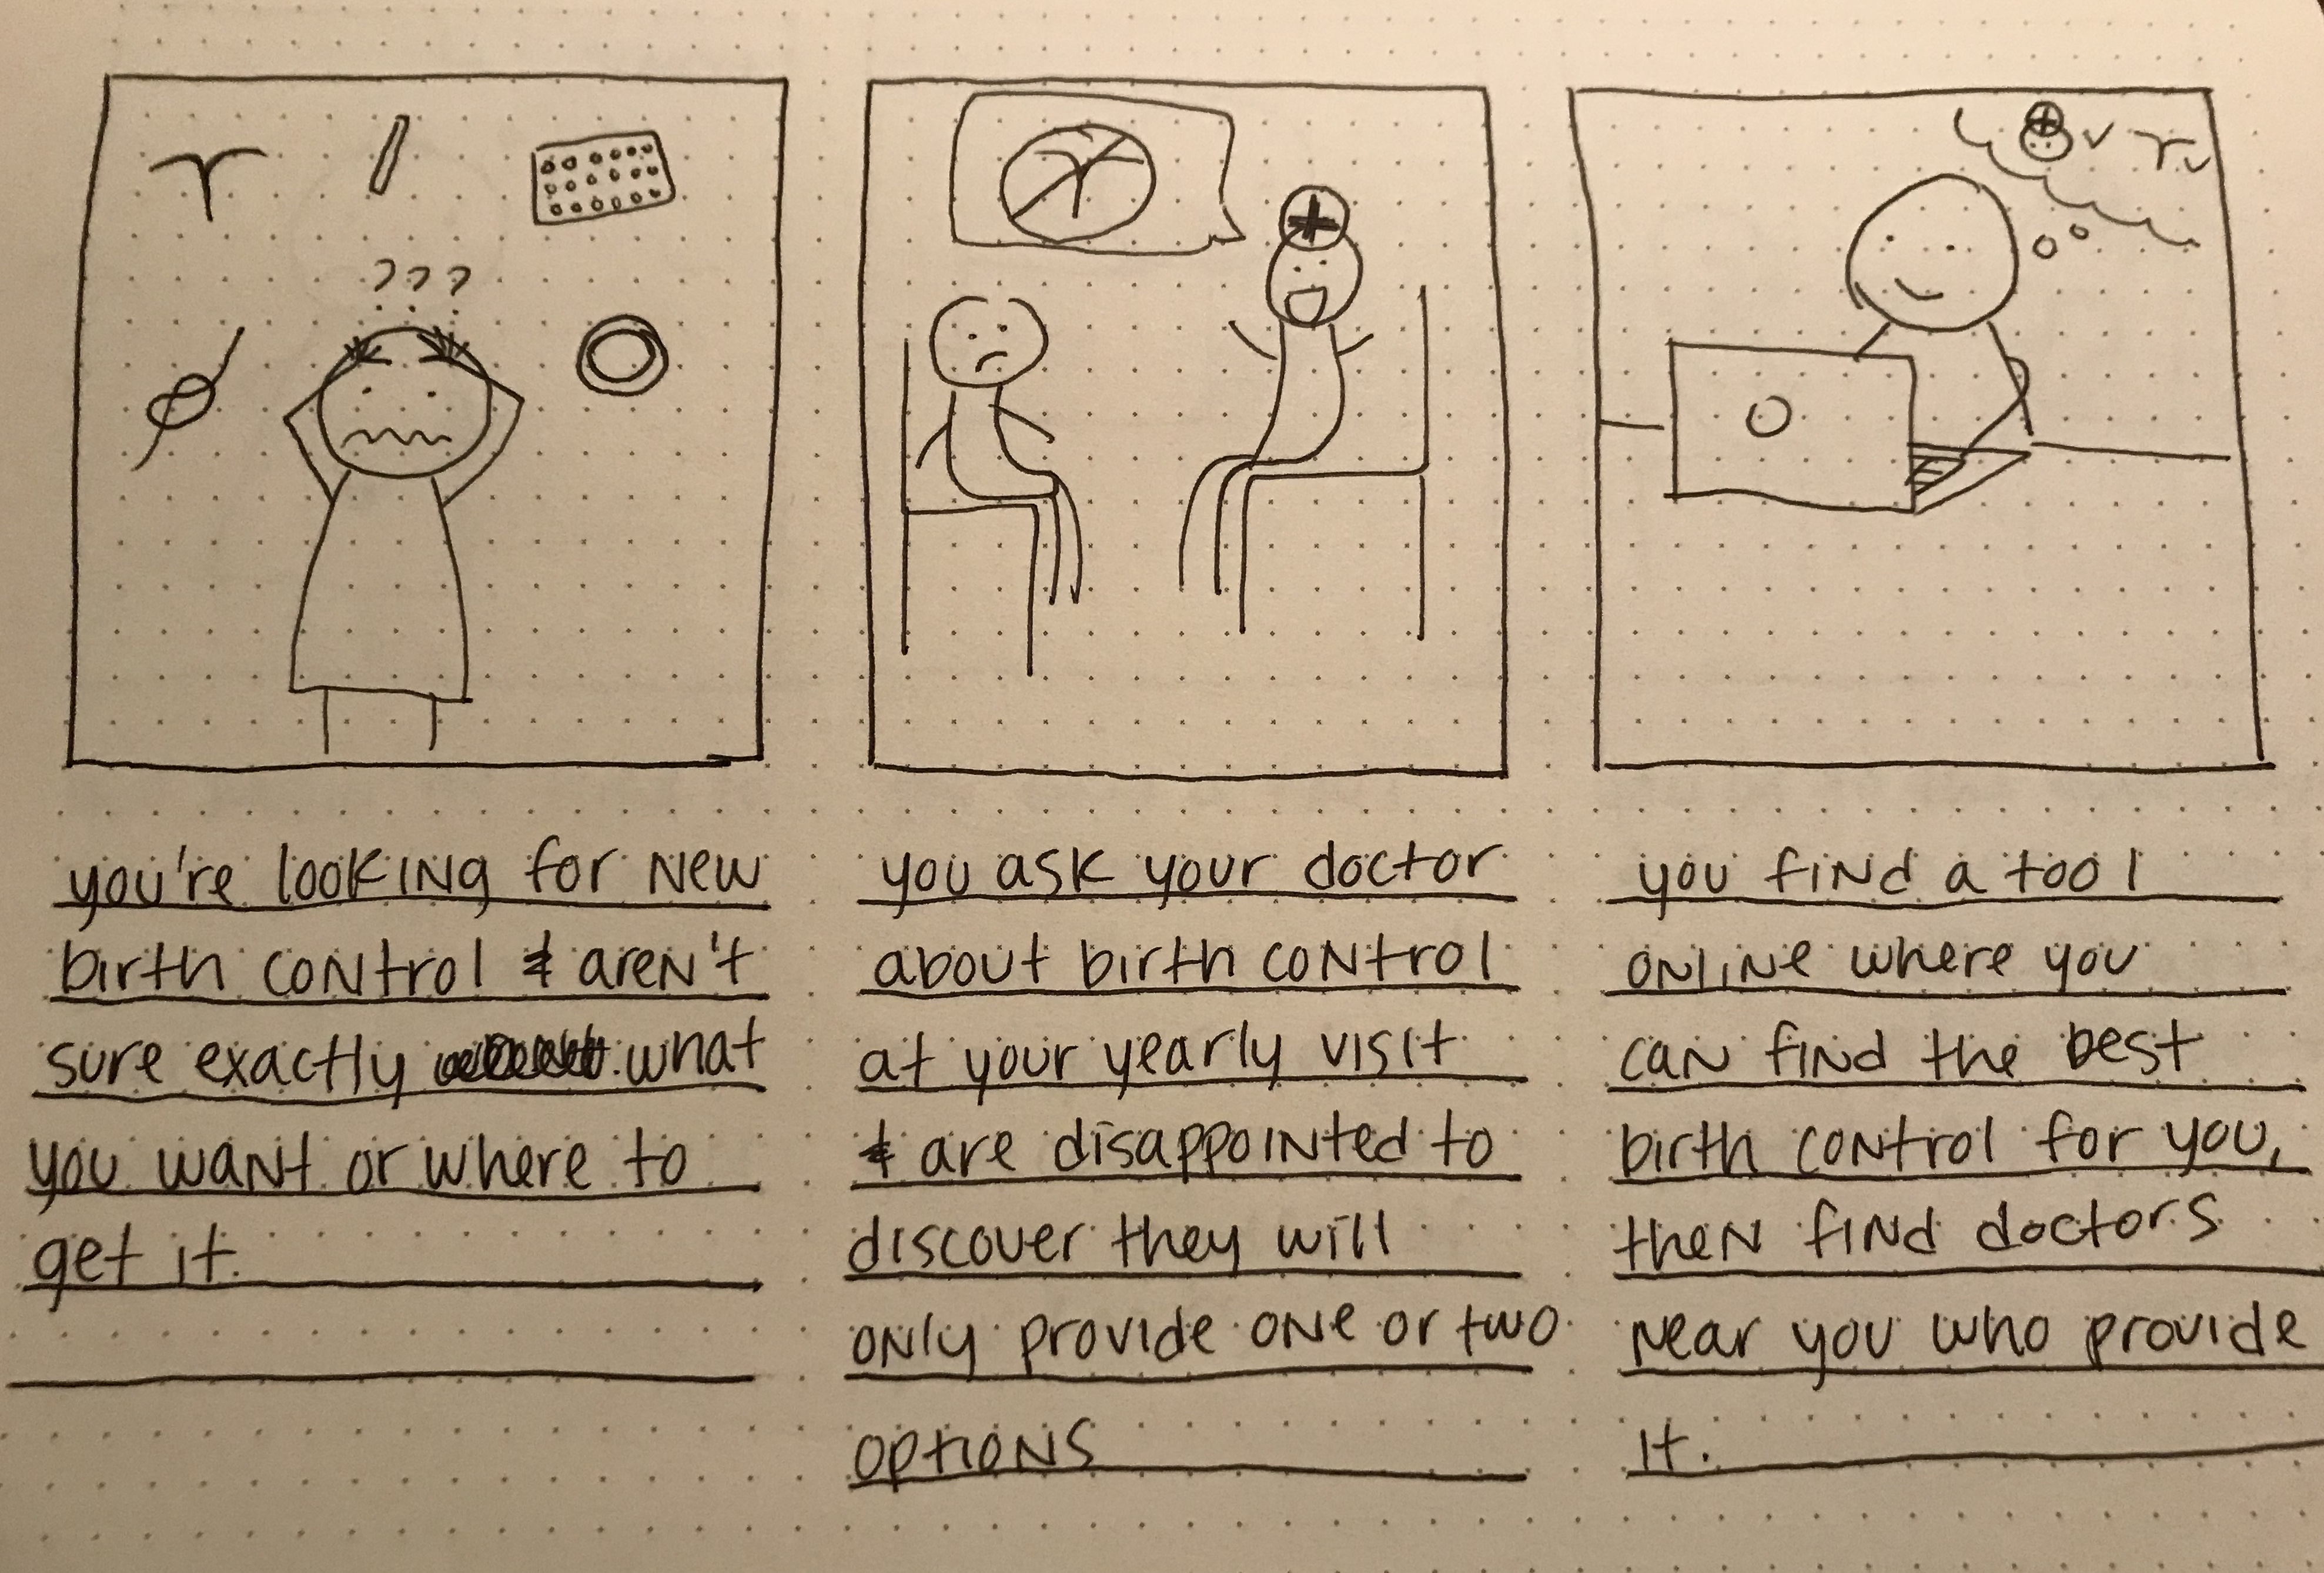 ???
you're looking for new
birth control & aren't
sure exactly what
you want or where to
get it.
you ask your doctor
about birth control
at your yearly visit
& are disappointed to
discover they will
only provide one or two
options
you find a tool
online where you
can find the best
birth control for you,
then find doctors
near you who provide
it.